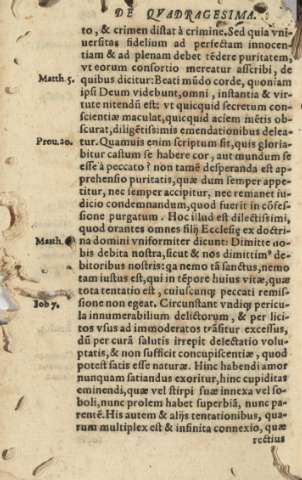 DE QVADRAGESIMA.
to, & crimen distat à crimine. Sed quia vni-
uersitas fidelium ad perfectam innocen-
tiam & ad plenam debet tēdere puritatem,
vt eorum consortio mereatur ascribi, de
Matth. 5. quibus dicitur: Beati mūdo corde, quoniam
ipsi Deum videbunt, omni, instantia & vir-
tute nitendū est: vt quicquid secretum con-
scientiæ maculat, quicquid aciem mētis ob-
scurat, diligētissimis emendationibus delea-
Prou. 20. tur. Quamuis enim scriptum sit, quis gloria-
bitur castum se habere cor, aut mundum se
esse à peccato? non tamē desperanda est ap-
prehensio puritatis, quæ dum semper appe-
titur, nec semper accipitur, nec remanet iu-
dicio condemnandum, quod fuerit in cōfes-
sione purgatum. Hoc illud est dilectissimi,
quod orantes omnes filij Ecclesię ex doctri-
Matth. na domini vniformiter dicunt: Dimitte no-
bis debita nostra, sicut & nos dimittimꝰ de-
bitoribus nostris: qa nemo tā sanctus, nemo
tam iustus est, qui in tēpore huius vitæ, quæ
tota tentatio est, cuiuscunq; peccati remis-
Iob 7. sione non egeat. Circunstant vndiq; pericu-
la innumerabilium delictorum, & per lici-
tos vsus ad immoderatos trāsitur excessus,
dū per curā salutis irrepit delectatio volu-
ptatis, & non sufficit concupiscentiæ, quod
potest satis esse naturæ. Hinc habendi amor
nunquam satiandus exoritur, hinc cupiditas
eminendi, quæ vel stirpi suæ innexa vel so-
boli, nunc prolem habet superbiā, nunc pa-
rentē. His autem & alijs tentationibus, qua-
rum multiplex est & infinita connexio, quæ
rectius